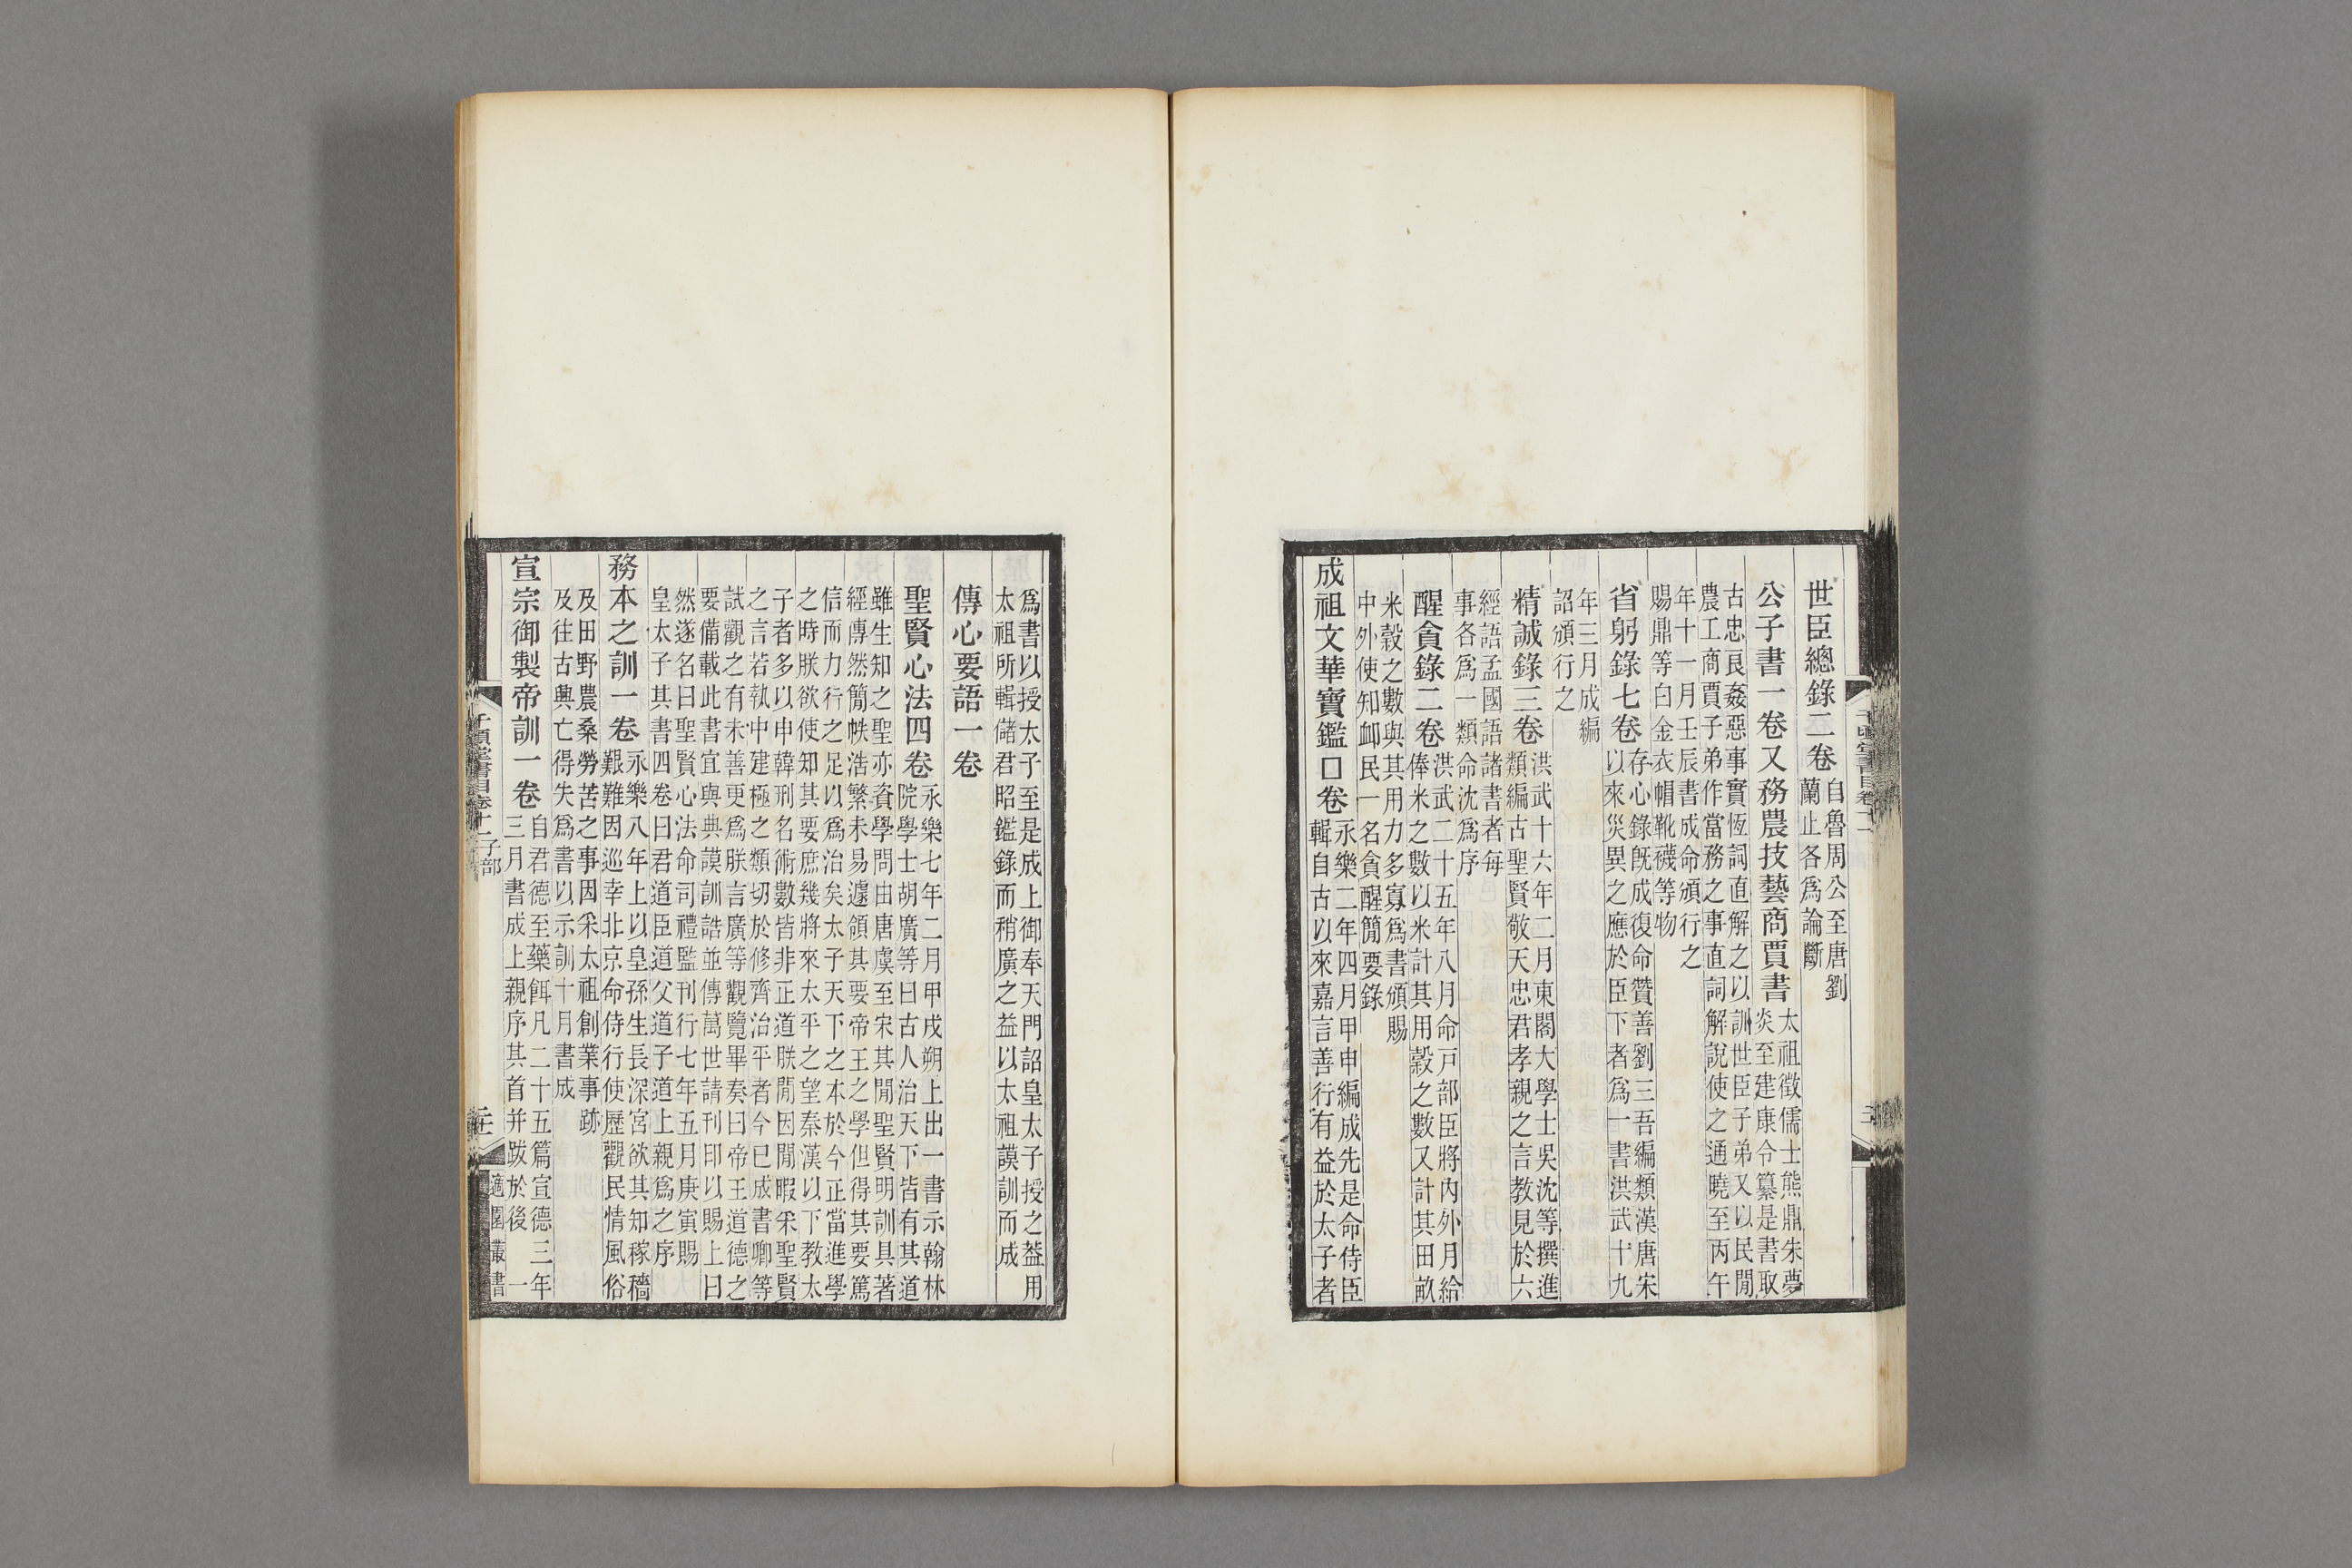 世臣總錄二卷自魯周公至唐劉
蘭止各爲論斷
公子書一卷又務農技藝商賈書太祖徵儒士熊鼎朱夢
炎至建康令纂是書取
古忠良姦惡事實恆詞直解之以訓世臣子弟又以民閒
農工商賈子弟作當務之事直詞解說使之通曉至丙午
年十一月壬辰書成命頒行之
賜鼎等白金衣帽靴襪等物
省躬錄七卷存心錄旣成復命贊善劉三吾編類漢唐宋
以來災異之應於臣下者爲一書洪武十九
年三月成編
詔頒行之
精誠錄三卷洪武十六年二月東閣大學士吳沈等撰進
類編古聖賢敬天忠君孝親之言教見於六
經語孟國語諸書者每
事各爲一類命沈爲序
醒貪錄二卷洪武二十五年八月命戸部臣將內外月給
俸米之數以米計其用穀之數又計其田畝
米穀之數與其用力多寡爲書頒賜
中外使知卹民一名貪醒簡要錄
成祖文華寶鑑囗卷永樂二年四月甲申編成先是命侍臣
輯自古以來嘉言善行有益於太子者
爲書以授太子至是成上御奉天門詔皇太子授之葢用
太祖所輯儲君昭鑑錄而稍廣之益以太祖謨訓而成
傳心要語一卷
聖賢心法四卷永樂七年二月甲戌朔上出一書示翰林
院學士胡廣等曰古人治天下皆有其道
雖生知之聖亦資學問由唐虞至宋其閒聖賢明訓具著
經傳然簡帙浩繁未易遽領其要帝王之學但得其要篤
信而力行之足以爲治矣太子天下之本於今正當進學
之時朕欲使知其要庶幾將來太平之望秦漢以下教太
子者多以申韓刑名術數皆非正道朕閒因閒暇采聖賢
之言若執中建極之類切於修齊治平者今已成書卿等
試觀之有未善更爲朕言廣等觀覽畢奏曰帝王道德之
要備載此書宜與典謨訓誥並傳萬世請刊印以賜上曰
然遂名曰聖賢心法命司禮監刊行七年五月庚寅賜
皇太子其書四卷曰君道臣道父道子道上親爲之序
務本之訓一卷永樂八年上以皇孫生長深宮欲其知稼穡
艱難因巡幸北京命侍行使歷觀民情風俗
及田野農桑勞苦之事因采太祖創業事跡
及往古興亡得失爲書以示訓十月書成
宣宗御製帝訓一卷自君德至藥餌凡二十五篇宣德三年
三月書成上親序其首并跋於後　一
千頃堂書目卷十一子部
適園叢書